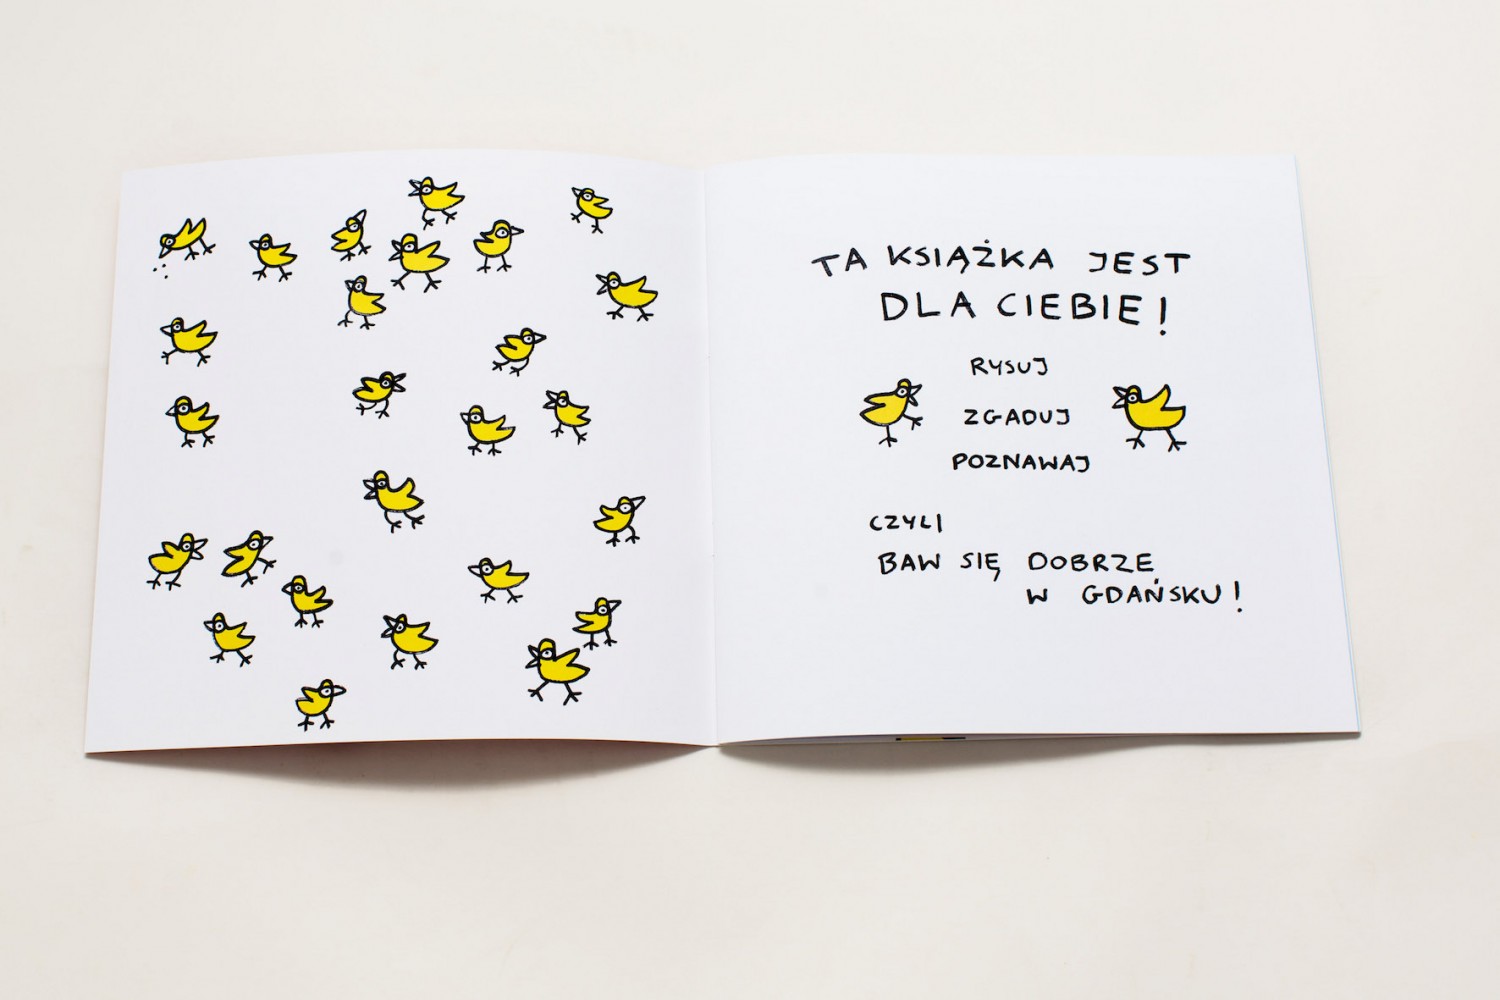 TA KSIĄŻKA JEST
DLA CIEBIE!
RYSUJ
ZGADUJ
POZNAWAJ
CZYLI
BAW SIĘ DOBRZE
W GDAŃSKU!